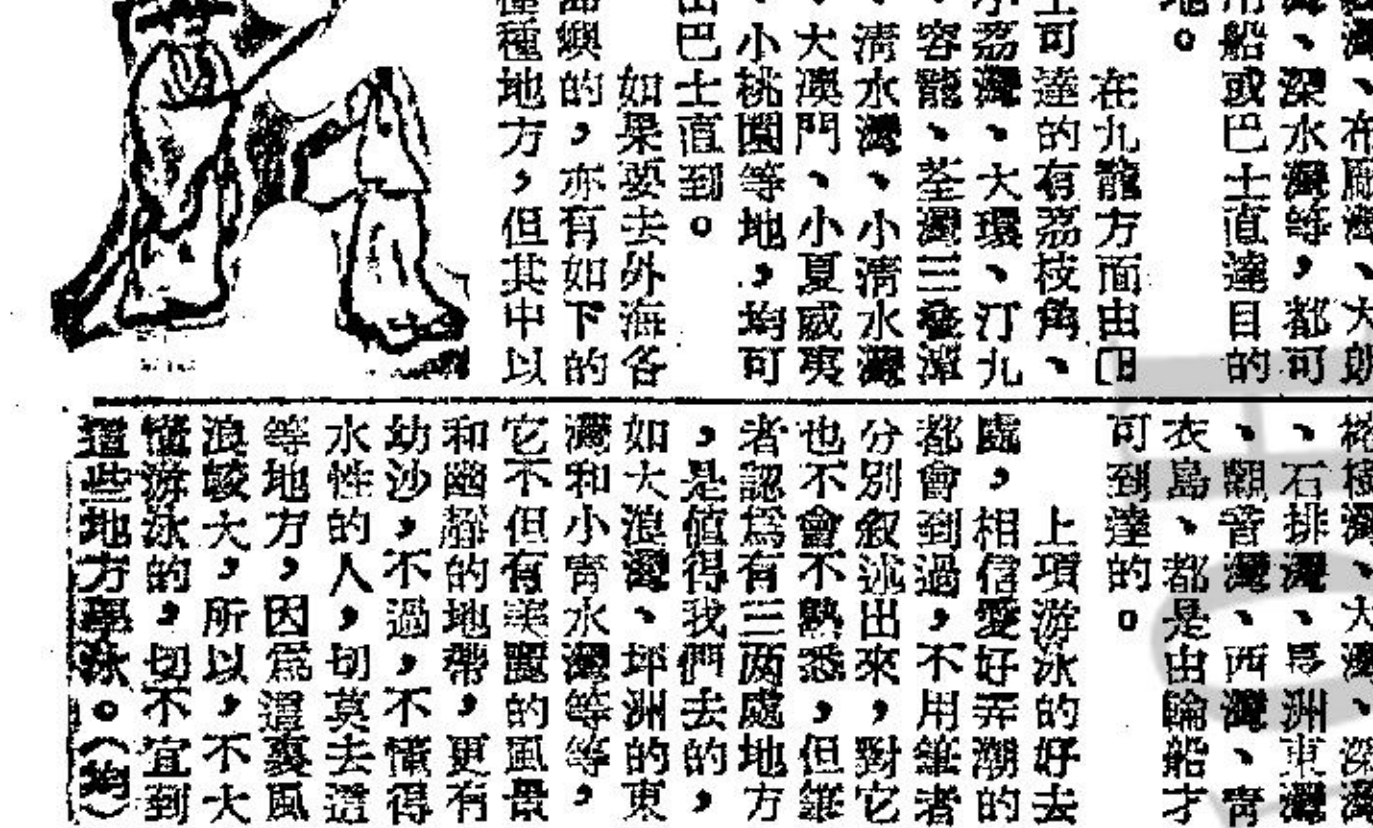 灣、布厰灣、大朗
灣、深水灣等,都可
用船或巴士直達目的
地。
在九龍方面由
士可達的有荔枝角、
小荔灣、大環、汀九
、容龍、荃灣三叠潭
、清水灣、小清水灣
、大澳門、小夏威夷
、小桃園等地,均可
由巴士直到。
如果要去外海各
島嶼的,亦有如下的
種種地方,但其中以
灣、大灣、深灣
、石排灣、馬洲東灣
、觀音灣、西灣、青
衣島、都是由輪船才
可到達的。
上項游泳的好去
處,相信愛好弄潮的
都會到過,不用筆者
分別叙述出來,對它
也不會不熟悉,但筆
者認爲有三両處地方
,是值得我們去的,
如大浪灣、坪洲的東
灣和小青水灣等等,
它不但有美麗的風景
和幽靜的地帶,更有
幼沙,不過,不懂得
水性的人,切莫去這
等地方,因爲這裏風
浪較大,所以,不大
懂游泳的,切不宜到
這些地方學泳。(均)